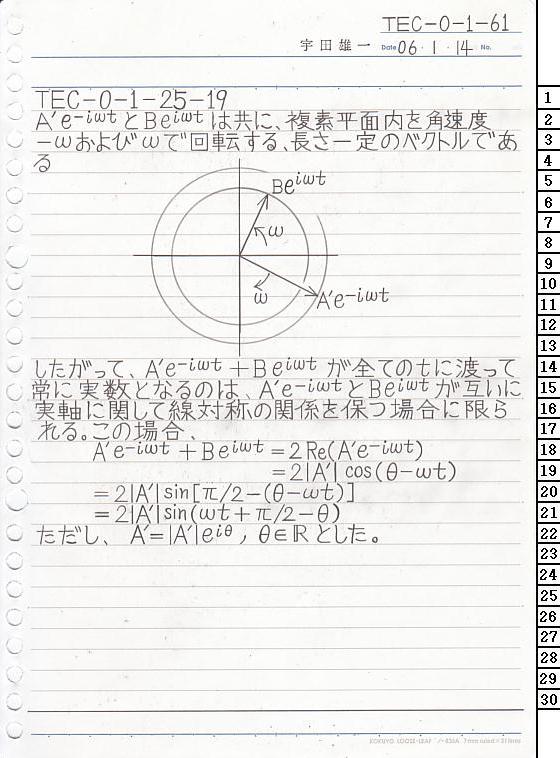 TEC-0-1-61
宇田雄一 Date 06・1・14 No.
TEC-0-1-25-19
A′e^-iωt と Be^iωt は共に、複素平面内を角速度
-ωおよびωで回転する、長さ一定のベクトルであ
る
Be^iωt
ω
ω
A′e^-iωt
したがって、A′e^-iωt + Be^iωt が全てのtに渡って
常に実数となるのは、A′e^-iωtとBe^iωtが互いに
実軸に関して線対称の関係を保つ場合に限ら
れる。この場合、
A′e^-iωt + Be^iωt = 2Re(A′e^-iωt)
= 2|A′| cos(θ-ωt)
= 2|A′| sin[π/2-(θ-ωt)]
= 2|A′| sin(ωt+π/2-θ)
ただし、 A′=|A′|e^iθ, θ∈ℝ とした。
KOKUYO LOOSE-LEAF ノ-836A 7mm ruled × 31 lines
1
2
3
4
5
6
7
8
9
10
11
12
13
14
15
16
17
18
19
20
21
22
23
24
25
26
27
28
29
30